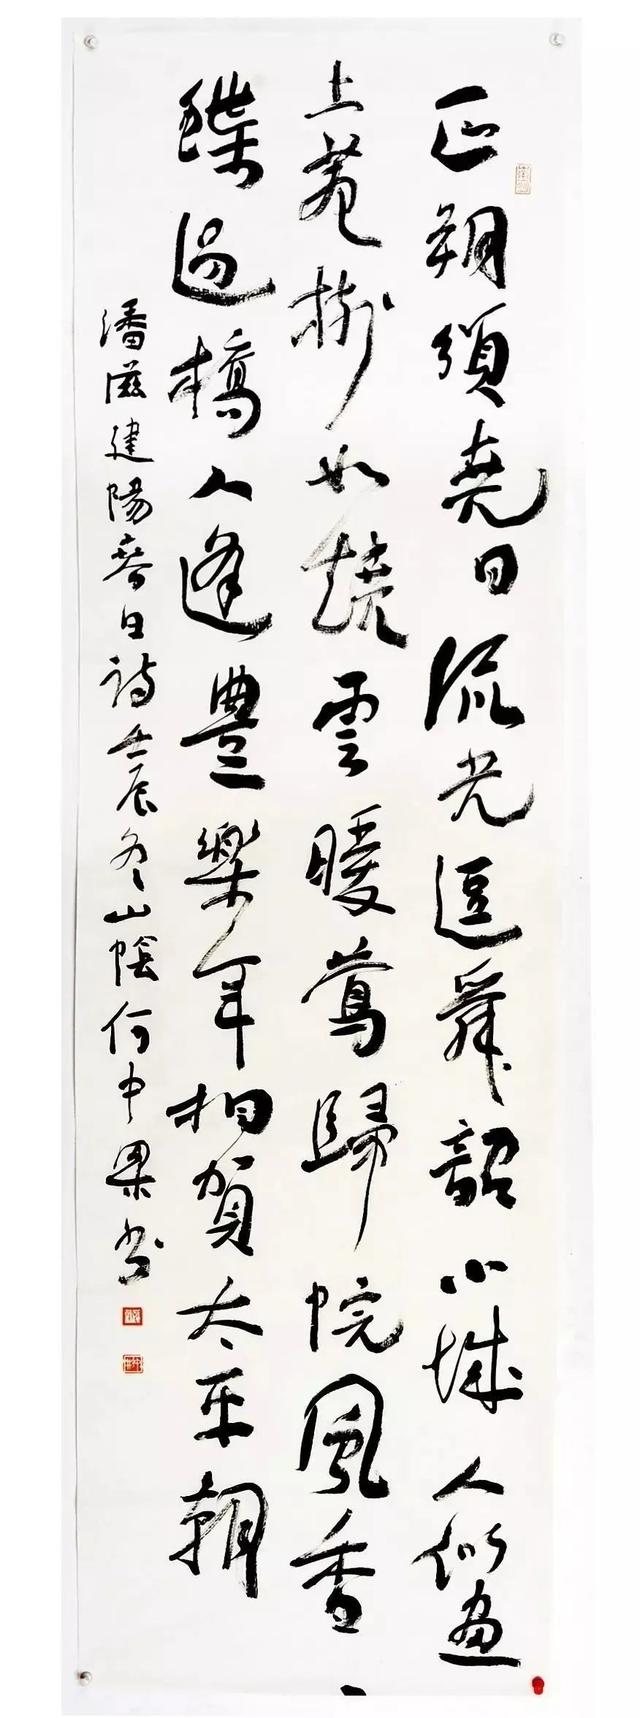 正朔頒堯日流光逗舜韶小城人似畫
上苑樹如燒雲暖鶯歸院風香
蝶過橋人逢豊樂年相賀太平朝
潘滋建陽春日詩壬辰冬山陰何中梁書